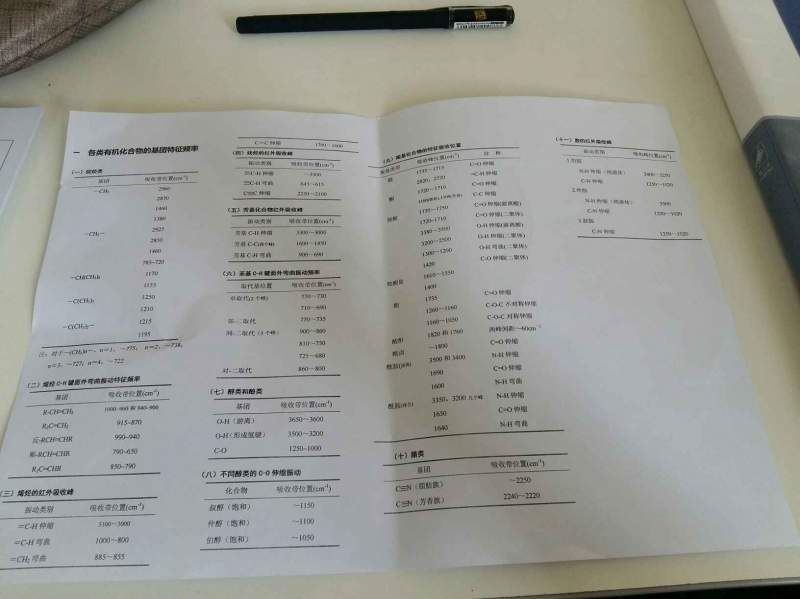 一 各类有机化合物的基团特征频率
(一) 烷烃类
基团 吸收带位置(cm⁻¹)
-CH₃ 2960
2870
1460
1380
-CH₂- 2925
2850
1460
785~720
-CH(CH₃)₂ 1170
1155
-C(CH₃)₃ 1250
1210
-C(CH₃)₂- 1215
1195
注:对于-(CH₂)n-,n=1,~775; n=2,~738;
n=3,~727;n=4,~722
(二) 烯烃 C-H 键面外弯曲振动特征频率
基团 吸收带位置(cm⁻¹)
R-CH=CH₂ 1000~960 和 940~900
R₂C=CH₂ 915~870
反-RCH=CHR 990~940
顺-RCH=CHR 790~650
R₂C=CHR 850~790
(三) 烯烃的红外吸收峰
振动类别 吸收带位置(cm⁻¹)
=C-H 伸缩 3100~3000
=C-H 弯曲 1000~800
=CH₂ 弯曲 885~855
C=C 伸缩
(四) 炔烃的红外吸收峰
振动类别 吸收带位置(cm⁻¹)
≡C-H 伸缩 ~3300
≡C-H 弯曲 645~615
C≡C 伸缩 2250~2100
(五) 芳基化合物红外吸收峰
振动类别 吸收带位置(cm⁻¹)
芳基 C-H 伸缩 3300~3000
芳基 C-C 1600~1450
芳基 C-H 弯曲 900~690
(六) 苯基 C-H 键面外弯曲振动频率
取代基位置 吸收带位置(cm⁻¹)
单取代(2 个峰) 770~730
710~690
邻-二取代 770~735
间-二取代 900~860
810~750
725~680
对-二取代 860~800
(七) 醇类和酚类
基团 吸收带位置(cm⁻¹)
O-H(游离) 3650~3600
O-H(形成氢键) 3500~3200
C-O 1250~1000
(八) 不同醇类的 C-O 伸缩振动
化合物 吸收带位置(cm⁻¹)
叔醇(饱和) ~1150
仲醇(饱和) ~1100
伯醇(饱和) ~1050
(九) 羰基化合物的特征吸收位置
醛 C=O 伸缩
2820,2720 =C-H 伸缩
酮 C=O 伸缩
C-C 伸缩
羧酸 C=O 伸缩(游离酸)
1720~1710 C=O 伸缩(二聚体)
O-H 伸缩(游离酸)
3200~2500 O-H 伸缩(二聚体)
O-H 弯曲(二聚体)
1300~1200 C-O 伸缩(二聚体)
1420
羧酸盐
1400
酯 1735 C=O 伸缩
1260~1160 C-O-C 不对称伸缩
1160~1050 C-O-C 对称伸缩
酸酐 1820 和 1760 两峰间距~60cm⁻¹
酰卤 ~1800 C=O 伸缩
酰胺(游离) 3500 和 3400 N-H 伸缩
1690 C=O 伸缩
1600 N-H 弯曲
酰胺(缔合) 3350,3200 几个峰 N-H 伸缩
1650 C=O 伸缩
1640 N-H 弯曲
(十) 腈类
基团 吸收带位置(cm⁻¹)
C≡N(脂肪族) ~2250
C≡N(芳香族) 2240~2220
(十一) 胺的红外吸收峰
振动类别 吸收峰位置(cm⁻¹)
1.伯胺
N-H 伸缩
C-N 伸缩 1250~1020
2.仲胺
N-H 伸缩
C-N 伸缩 1250~1020
3.叔胺
C-N 伸缩 1250~1020